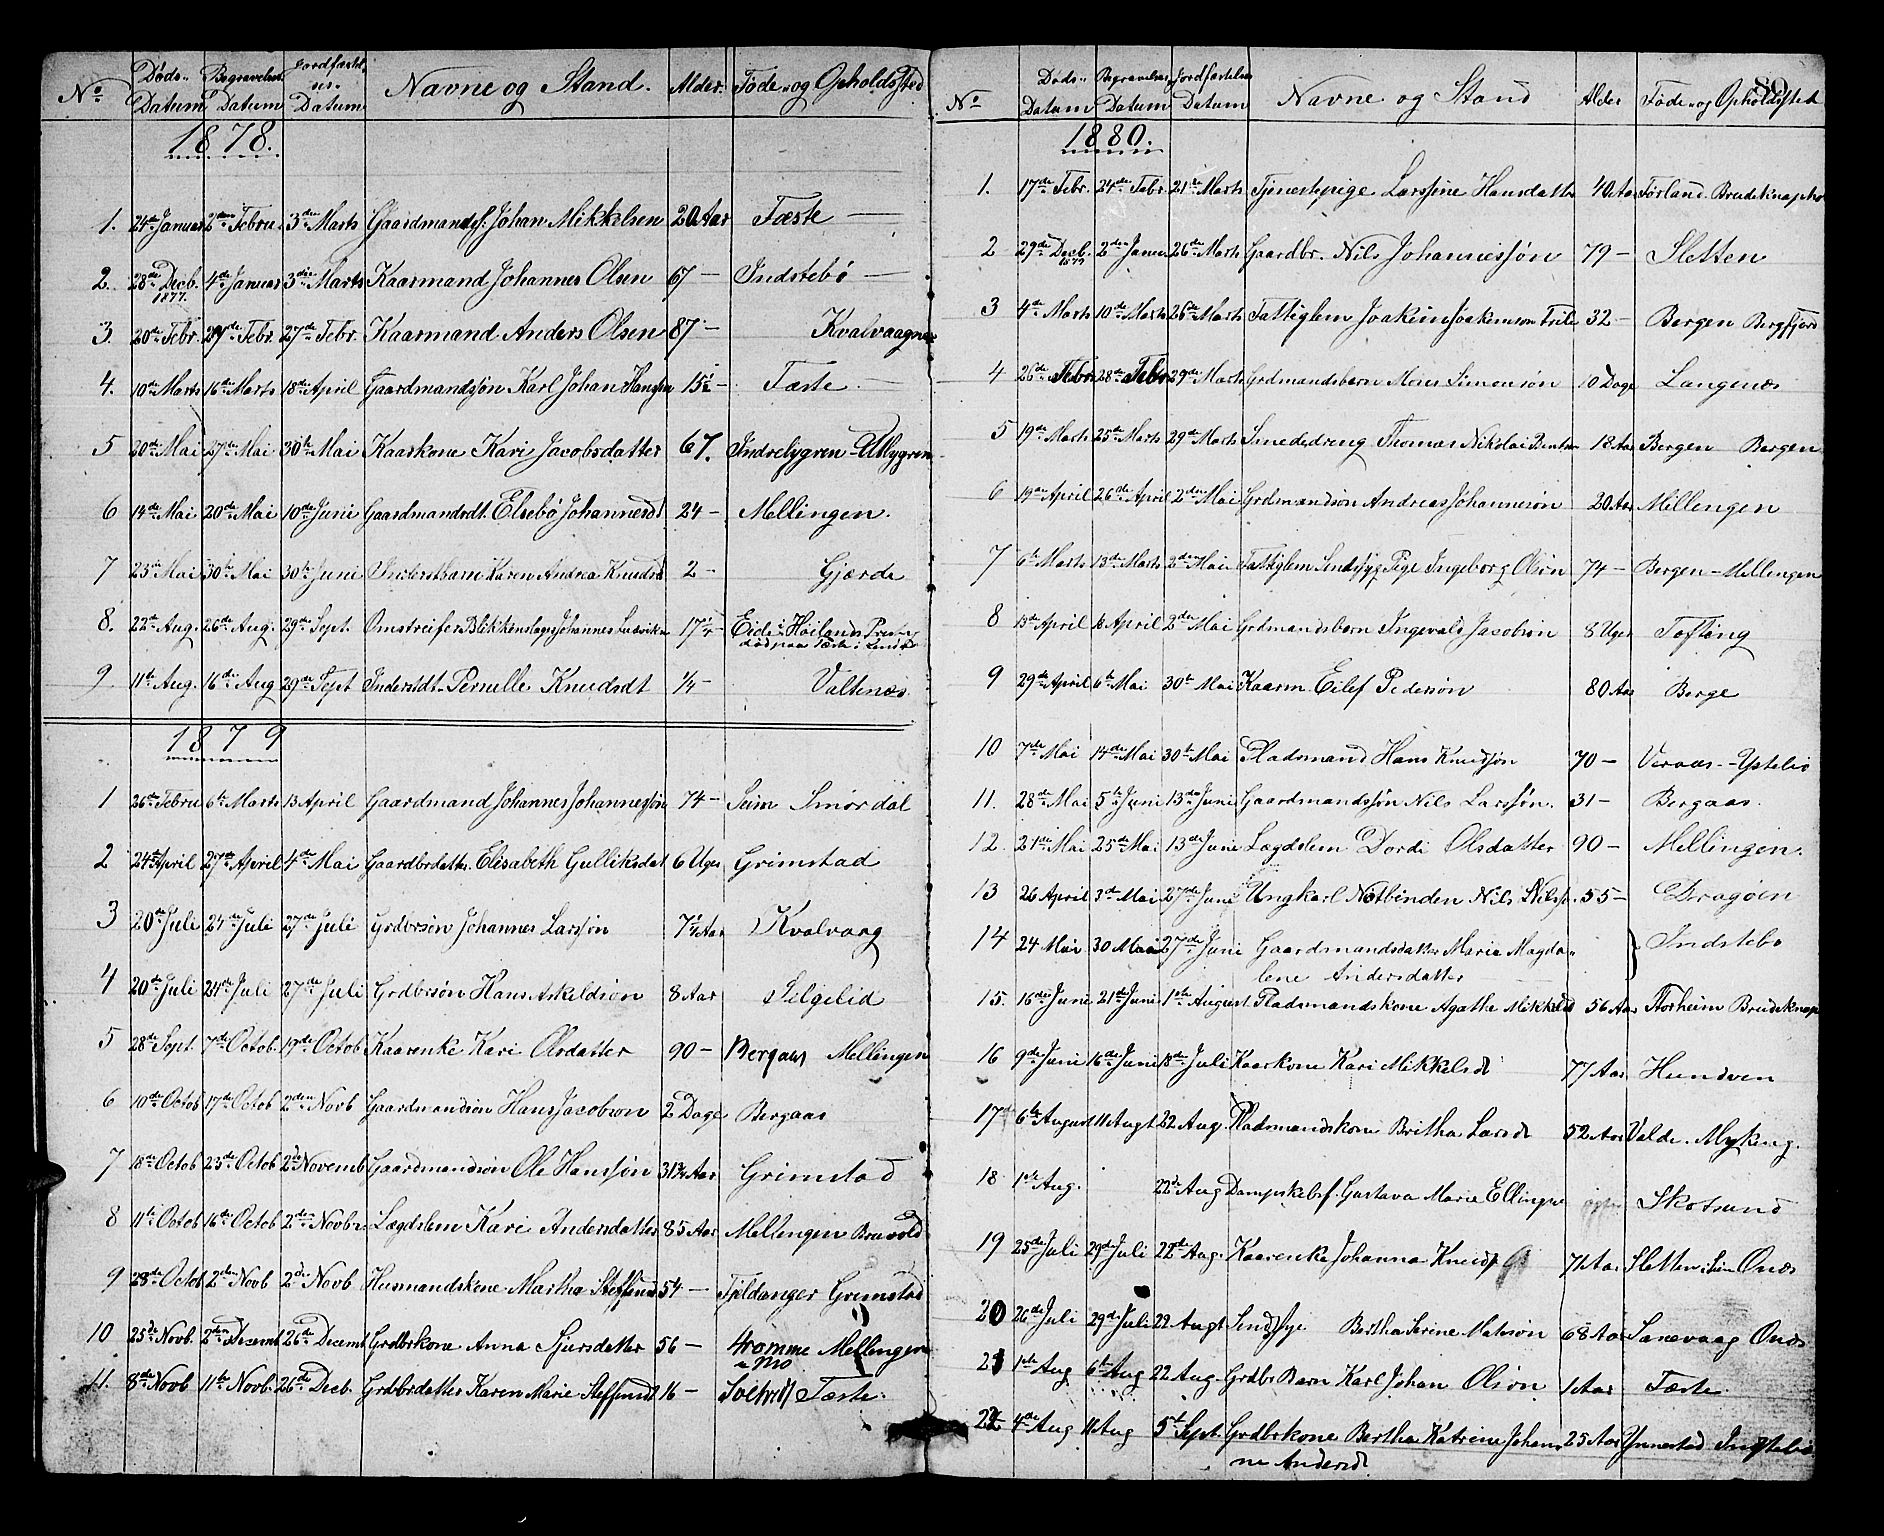 Nº Døds- Datum Begravelses Datum Jordfæstel. Datum Navne og Stand. Alder. Føde- og Opholdssted
1878.
1. 24de Januar 2den Febru. 3die Marts Gaardmands. Johan Mikkelsen 20 Aar Fæste —
2. 28de Decb. 1877. 4de Januar 3die Marts Kaarmand Johannes Olsen 67 — Indstebø —
3. 20de Febr. 27de Febr. 27de Febr. Kaarmand Anders Olsen 87 — Kvalvaagnes
4. 10de Marts 16de Marts 18de April Gaardmandssøn Karl Johan Hansen 15½ — Fæste —
5 20de Mai 27de Mai 30te Mai Kaarkone Kari Jacobsdatter 67. Indrelygren - Utlygren
6 14de Mai 20de Mai 10de Juni Gaardmandsdt. Elsebø Johannesdt 24 — Mellingen.
7 23de Mai 30te Mai 30te Juni Inderstbarn Karen Andrea Knudsd 2 — Gjærde
8. 22de Aug. 26de Aug. 29de Sept. Omstreifer Blikkenslager Johannes Ludvik 17 Eide i Høilands Præst. død paa Fæste i Lindaas
9 11te Aug. 16de Aug 29de Sept Inderstdt. Pernelle Knudsdt ¼ — Valtenæs
1879
1 26de Febru 6te Marts 13 April Gaardmand Johannes Johannessøn 74 — Seim Smørdal
2 24de April 27de April 4de Mai Gaardbrdatter. Elisabeth Gulliksdat 6 Uger Grimstad
3 20de Juli 24de Juli 27de Juli Grdbrsøn Johannes Larssøn 7½ Aar Kvalvaag
4 20de Juli 24de Juli 27de Juli Grdbrsøn Hans Askeldsøn 8 Aar Silgelid
5 28de Sept. 7de Octob. 19de Octob Kaarenke Kari Olsdatter 90 — Bergaas Mellingen
6 10de Octob 17de Octob 2den Novb Gaardmandsøn Hans Jacobsøn 2 Dage Bergaas
7 18de Octob 25de Octob 2de Novemb Gaardmandsøn Ole Hanssøn 31¾ Aar Grimstad
8 11te Octob 16de Octob 2den Novbr Lægdslem Kari Andersdatter 85 Aar Mellingen Bruvold
9 28de Octob 2den Novb 2de Novb Husmandskone Martha Steffensd 54 — Fjeldanger Grimstad
10 25de Novb. 2den Decemb 26de Decemb Grdbrkone Anna Sjursdatter 56 — Fromme Mellingen
11. 8de Novb 11te Novb. 26de Decb. Grdbrdatter Karen Marie Steffensdt 16 — Soltvedt Fæste.
89.
Nº Døds- Datum Begravelses Datum Jordfæstelses Datum Navne og Stand Alder Føde- og Opholdssted
1880.
1. 17de Febr. 24de Febr. 21de Marts Tjenestepige Larssine Hansdatter 40 Aar Førland. Brudeknappen
2 29de Decb. 1879 2den Januar 26de Marts Gaardbr. Nils Johannessøn 79 — Sletten
3 4de Marts 10de Marts 26de Marts Fattiglem Joakim Joakimson Friile 32 — Bergen Bergfjord
4 26de Febr 28de Febr 29de Marts Grdmandsbarn Moses Simonsøn 10 Dage Langenæs
5 19de Marts 25de Marts 29de Marts Smededreng Thomas Nikolai Bentsen 18 Aar Bergen Bergen
6 19de April 26de April 2den Mai Grdmandsøn Andreas Johannesøn 20 Aar Mellingen
7 6te Marts 13de Marts 2den Mai Fattiglem Sindsyg Pige Ingeborg Olsøn 74 — Bergen - Mellingen
8 13de April 16 April 2den Mai Grdmandsbarn Ingevald Jacobsøn 8 Uger Tofting
9 29de April 6te Mai 30te Mai Kaarm. Eilef Pedersøn 80 Aar Berge
10 7de Mai 14de Mai 30te Mai Pladsmand Hans Knudsøn 70 — Veraas - Ystebø
11. 28de Mai 5te Juni 13de Juni Gaardmandssøn Nils Larssøn. 31 — Bergaas.
12. 21de Mai 25de Mai 13de Juni Lægdslem Dordi Olsdatter 90 — Mellingen.
13 26 April 3de Mai 27de Juni Ungkarl Notbinden Nils Nilss. 55 — Dragøen
14 24 Mai 30 Mai 27de Juni Gaardmandsdatter Marie Magda-
lene Andersdatter Indstebø
15. 16de Juni 21de Juni 1ste August Pladsmandskone Agathe Mikkelsd 56 Aar Storheim Brudeknap
16 9de Juni 16de Juni 18de Juli Kaarkone Kari Mikkelsd 77 Aar Hundven
17 6te August 11 Augt 22 Aug. Pladsmandskone Britha Larsd 52 Aar Valde. Myking.
18 1ste Aug. 22de Aug Dampskibsf. Gustava Marie Ellingsen Skotsund
19 25de Juli 29de Juli 22de Aug. Kaarenke Johanna Knuds 71 Aar Sletten i Seim Onæs
20 26de Juli 29de Juli 22 Augt Sindssyge Bertha Serine Matsøn 68 Aar Sanevaag Onæs
21 1ste Aug 6te Aug 22 Aug. Grdbr. Barn Karl Johan Olsøn 1 Aar Fæste.
22 4de Aug 11 Aug 5te Sept. Grdbrkone Bertha Katrine Johan-
ne Andersd 25 Aar Ynnestad Indstebø